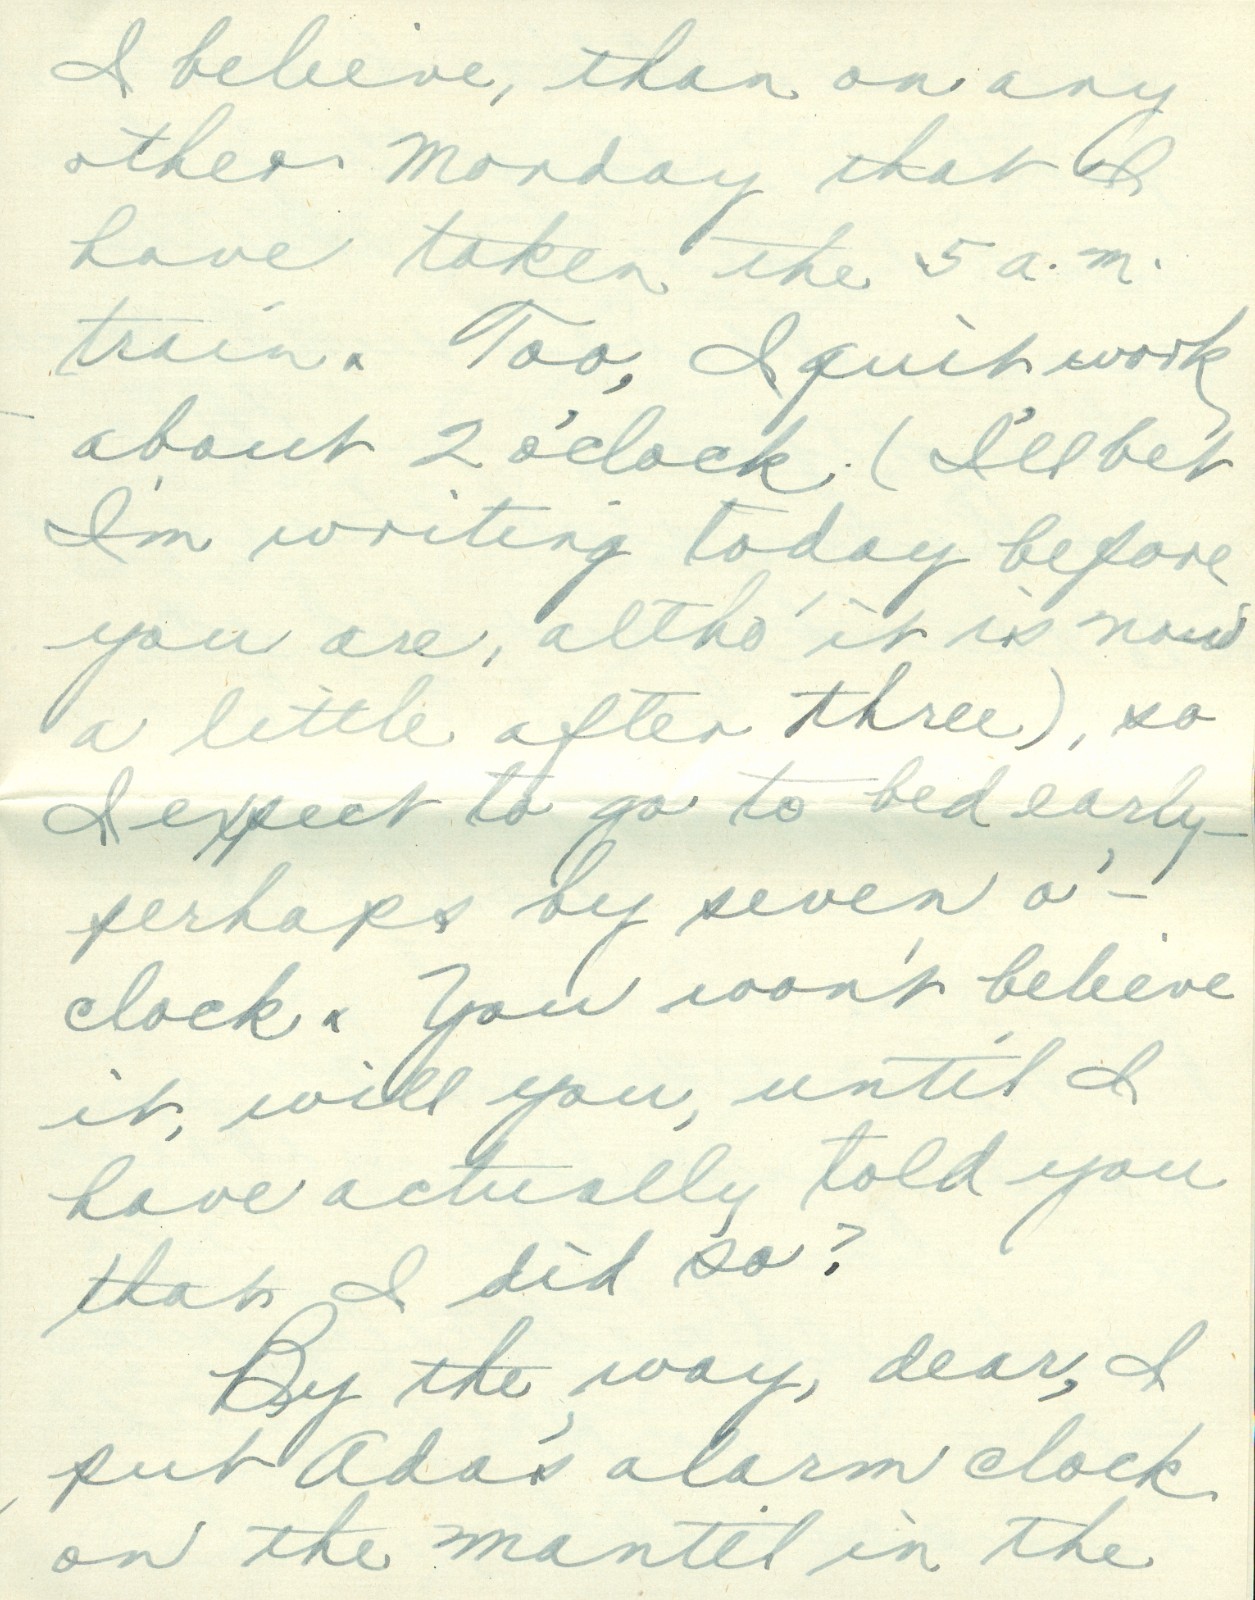 I believe, than on any
other Monday that I
have taken the 5 a.m.
train. Too, I quit work
about 2 o'clock. (I'll bet
I'm writing today before
you are, altho' it is now
a little after three), so
I expect to go to bed early -
perhaps by seven o' -
clock. You won't believe
it, will you, until I
have actually told you
that I did so?
By the way, dear, I
put Ada's alarm clock
on the mantel in the